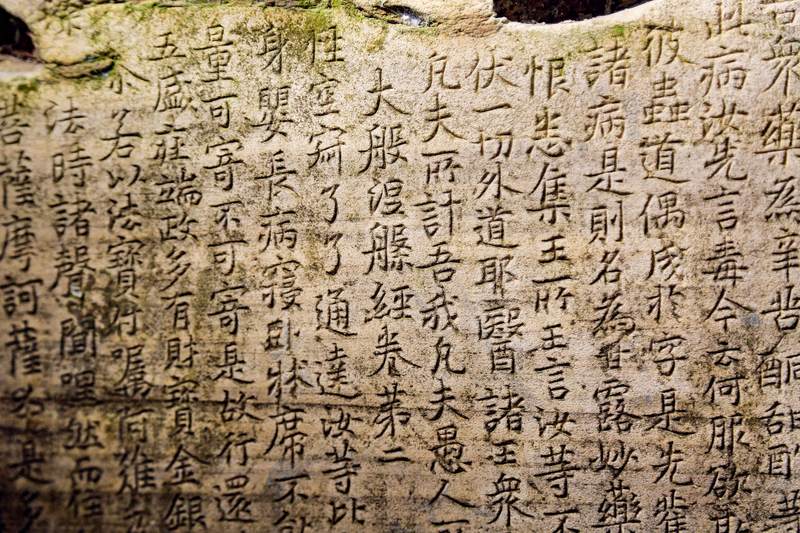 合衆藥為辛苦甜酢等
此病汝先言毒今云何服欲
彼蟲道偶成於字是先舊
諸病是則名為甘露妙藥
恨恚集王所王言汝等不
伏一切外道耶醫諸王衆
凡夫所計吾我凡夫愚人
大般涅槃經卷第二
性空寂了了通達汝等比
身嬰長病寢臥牀席不
量可寄不可寄是故行還
五盛莊端政多有財寶金銀
尒若以法寶付囑阿難
法時諸聲聞嘿然而住
菩薩摩訶薩以是多